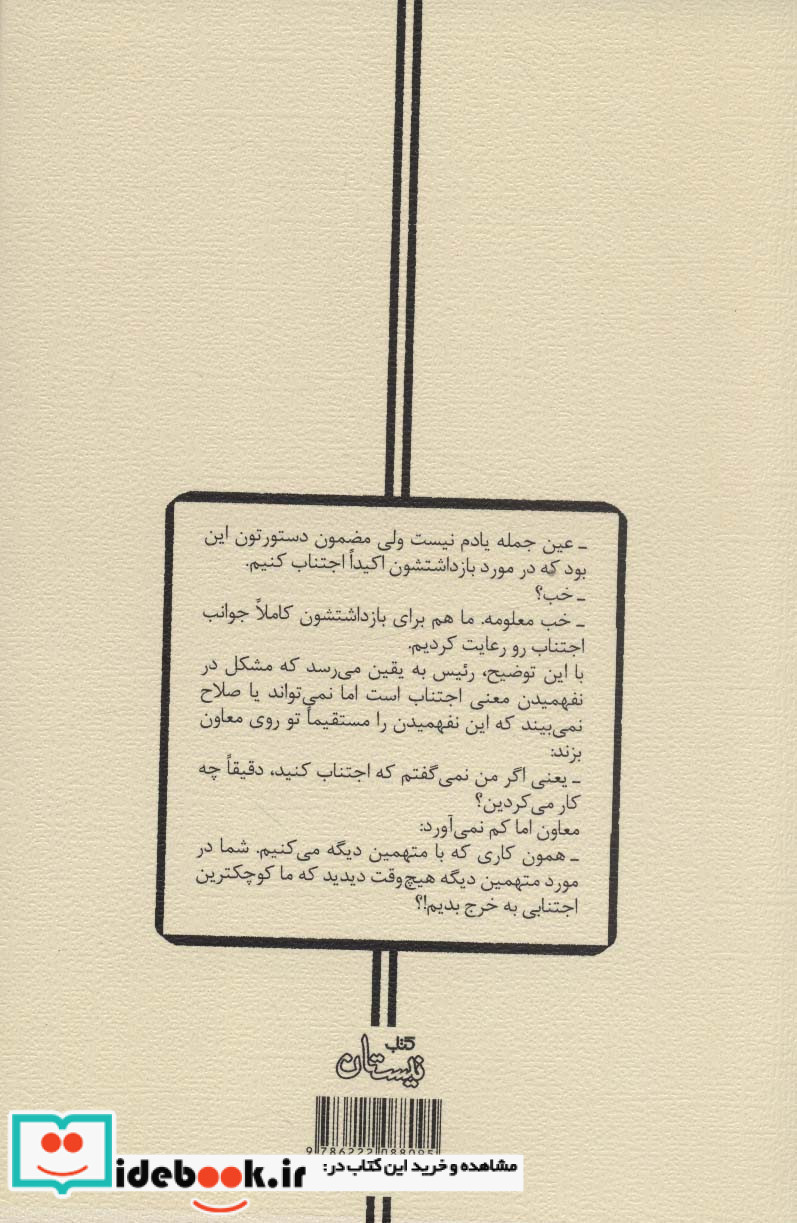 ـ عین جمله یادم نیست ولی مضمون دستورتون این
بود که در مورد بازداشتشون اکیداً اجتناب کنیم.
ـ خب؟
ـ خب معلومه. ما هم برای بازداشتشون کاملاً جوانب
اجتناب رو رعایت کردیم.
با این توضیح، رئیس به یقین می‌رسد که مشکل در
نفهمیدن معنی اجتناب است اما نمی‌تواند یا صلاح
نمی‌بیند که این نفهمیدن را مستقیماً تو روی معاون
بزند:
ـ یعنی اگر من نمی‌گفتم که اجتناب کنید، دقیقاً چه
کار می‌کردین؟
معاون اما کم نمی‌آورد:
ـ همون کاری که با متهمین دیگه می‌کنیم. شما در
مورد متهمین دیگه هیچ‌وقت دیدید که ما کوچکترین
اجتنابی به خرج بدیم!؟
کتاب
نیستان
9 786222 088095
مشاهده و خرید این کتاب در:
idebook.ir